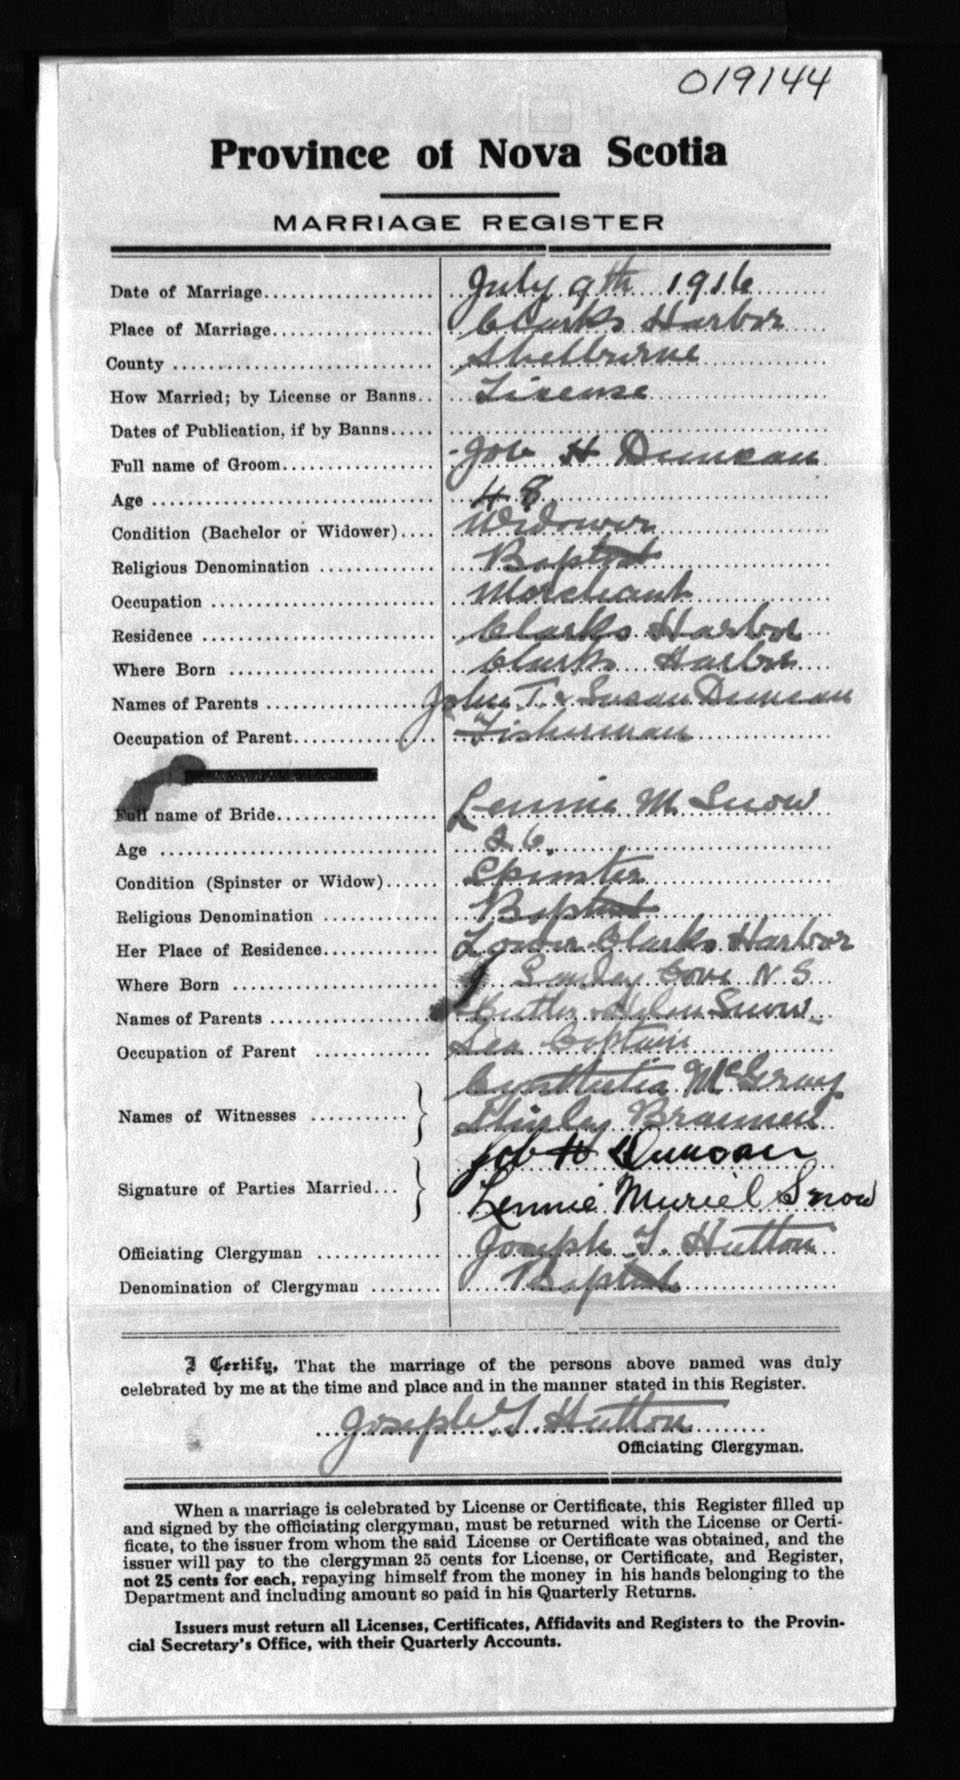 019144
Province of Nova Scotia
MARRIAGE REGISTER
Date of Marriage.................... July 9th 1916
Place of Marriage................... Clarks Harbor
County ............................. Shelburne
How Married; by License or Banns.. Lisense
Dates of Publication, if by Banns.....
Full name of Groom.................. Job H Duncan
Age ................................ 48
Condition (Bachelor or Widower).... Widower
Religious Denomination ............. Baptist
Occupation ......................... Merchant
Residence .......................... Clarks Harbor
Where Born ......................... Clarks Harbor
Names of Parents ................... John T. & Susan Duncan
Occupation of Parent................ Fisherman
Full name of Bride.................. Lennie M. Snow
Age ................................ 26.
Condition (Spinster or Widow)...... Spinster
Religious Denomination ............. Baptist
Her Place of Residence.............. Lower Clarks Harbor
Where Born ......................... Sandy Cove N S
Names of Parents ................... Butler Snow
Occupation of Parent ............... Sea Captain
McGray
Names of Witnesses ........... } Shirley Brannen
Job H Duncan
Signature of Parties Married... } Lennie Muriel Snow
Officiating Clergyman .............. Joseph Hutton
Denomination of Clergyman ........ Baptist
I Certify, That the marriage of the persons above named was duly
celebrated by me at the time and place and in the manner stated in this Register.
Joseph Hutton
Officiating Clergyman.
When a marriage is celebrated by License or Certificate, this Register filled up
and signed by the officiating clergyman, must be returned with the License or Certi-
ficate, to the issuer from whom the said License or Certificate was obtained, and the
issuer will pay to the clergyman 25 cents for License, or Certificate, and Register,
not 25 cents for each, repaying himself from the money in his hands belonging to the
Department and including amount so paid in his Quarterly Returns.
Issuers must return all Licenses, Certificates, Affidavits and Registers to the Provin-
cial Secretary's Office, with their Quarterly Accounts.